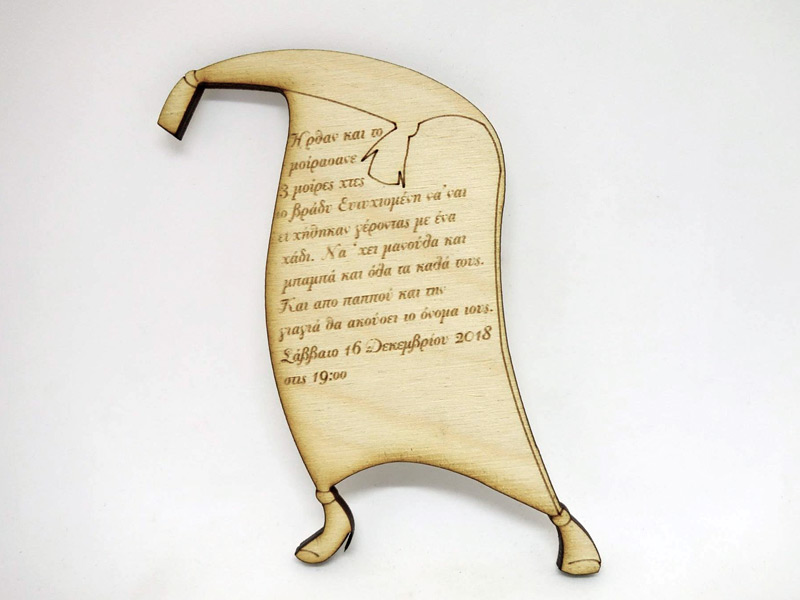 Ήρθαν και το
μοίρασανε
3 μοίρες χτες
το βράδυ Ευτυχισμένη να'ναι
ευχήθηκαν γέροντας με ένα
χάδι. Να 'χει μανούλα και
μπαμπά και όλα τα καλά τους.
Και απο παππού και την
γιαγιά θα ακούσει το όνομα τους.
Σάββατο 16 Δεκεμβρίου 2018
στις 19:00